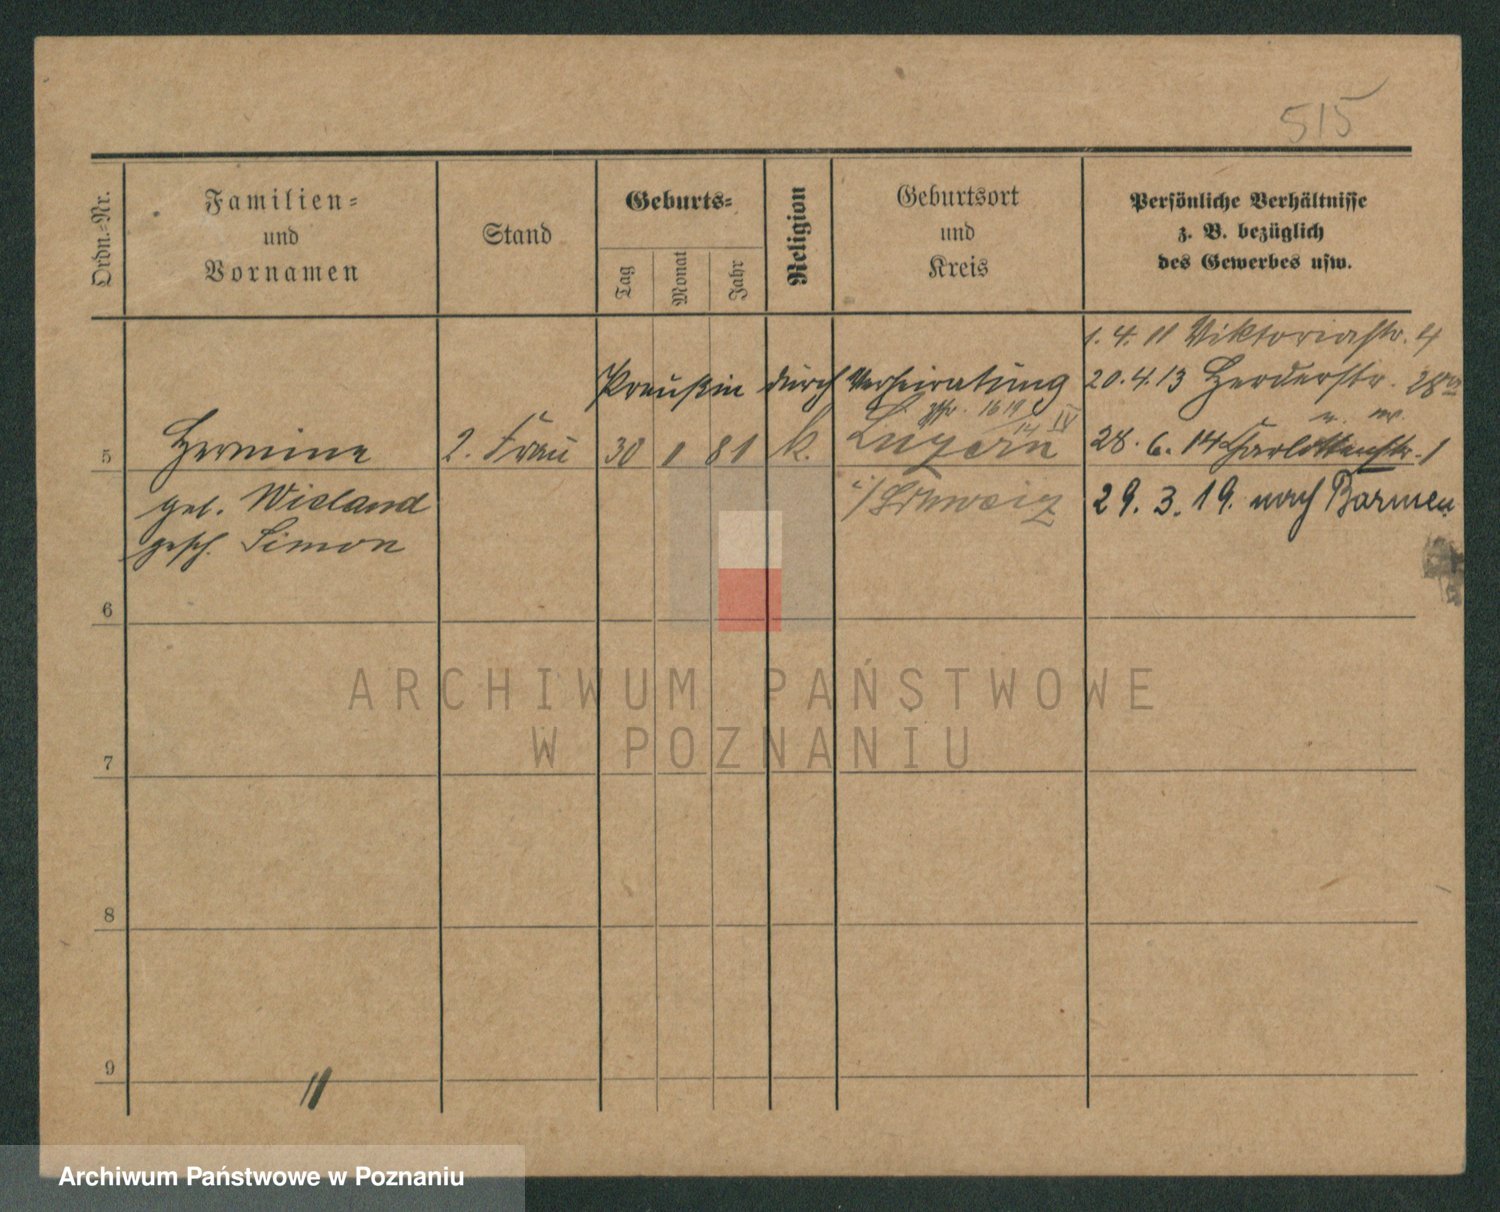 515
Ordn.-Nr.
Familien-
und
Vornamen
Stand
Geburts-
Tag
Monat
Jahr
Religion
Geburtsort
und
Kreis
Persönliche Verhältnisse
z. B. bezüglich
des Gewerbes usw.
1. 4. 11 Viktoriastr. 4
Preußin durch Verheiratung
20. 4. 13 Herderstr.
5 Hermine 2. Frau 30 1 81 k. Luzern
28. 6. 14 Charlottenstr. 1
geb. Wieland
i/Schweiz
29. 3. 19. nach Barmen
gesch. Simon
6
7
8
9
ARCHIWUM PAŃSTWOWE
W POZNANIU
Archiwum Państwowe w Poznaniu